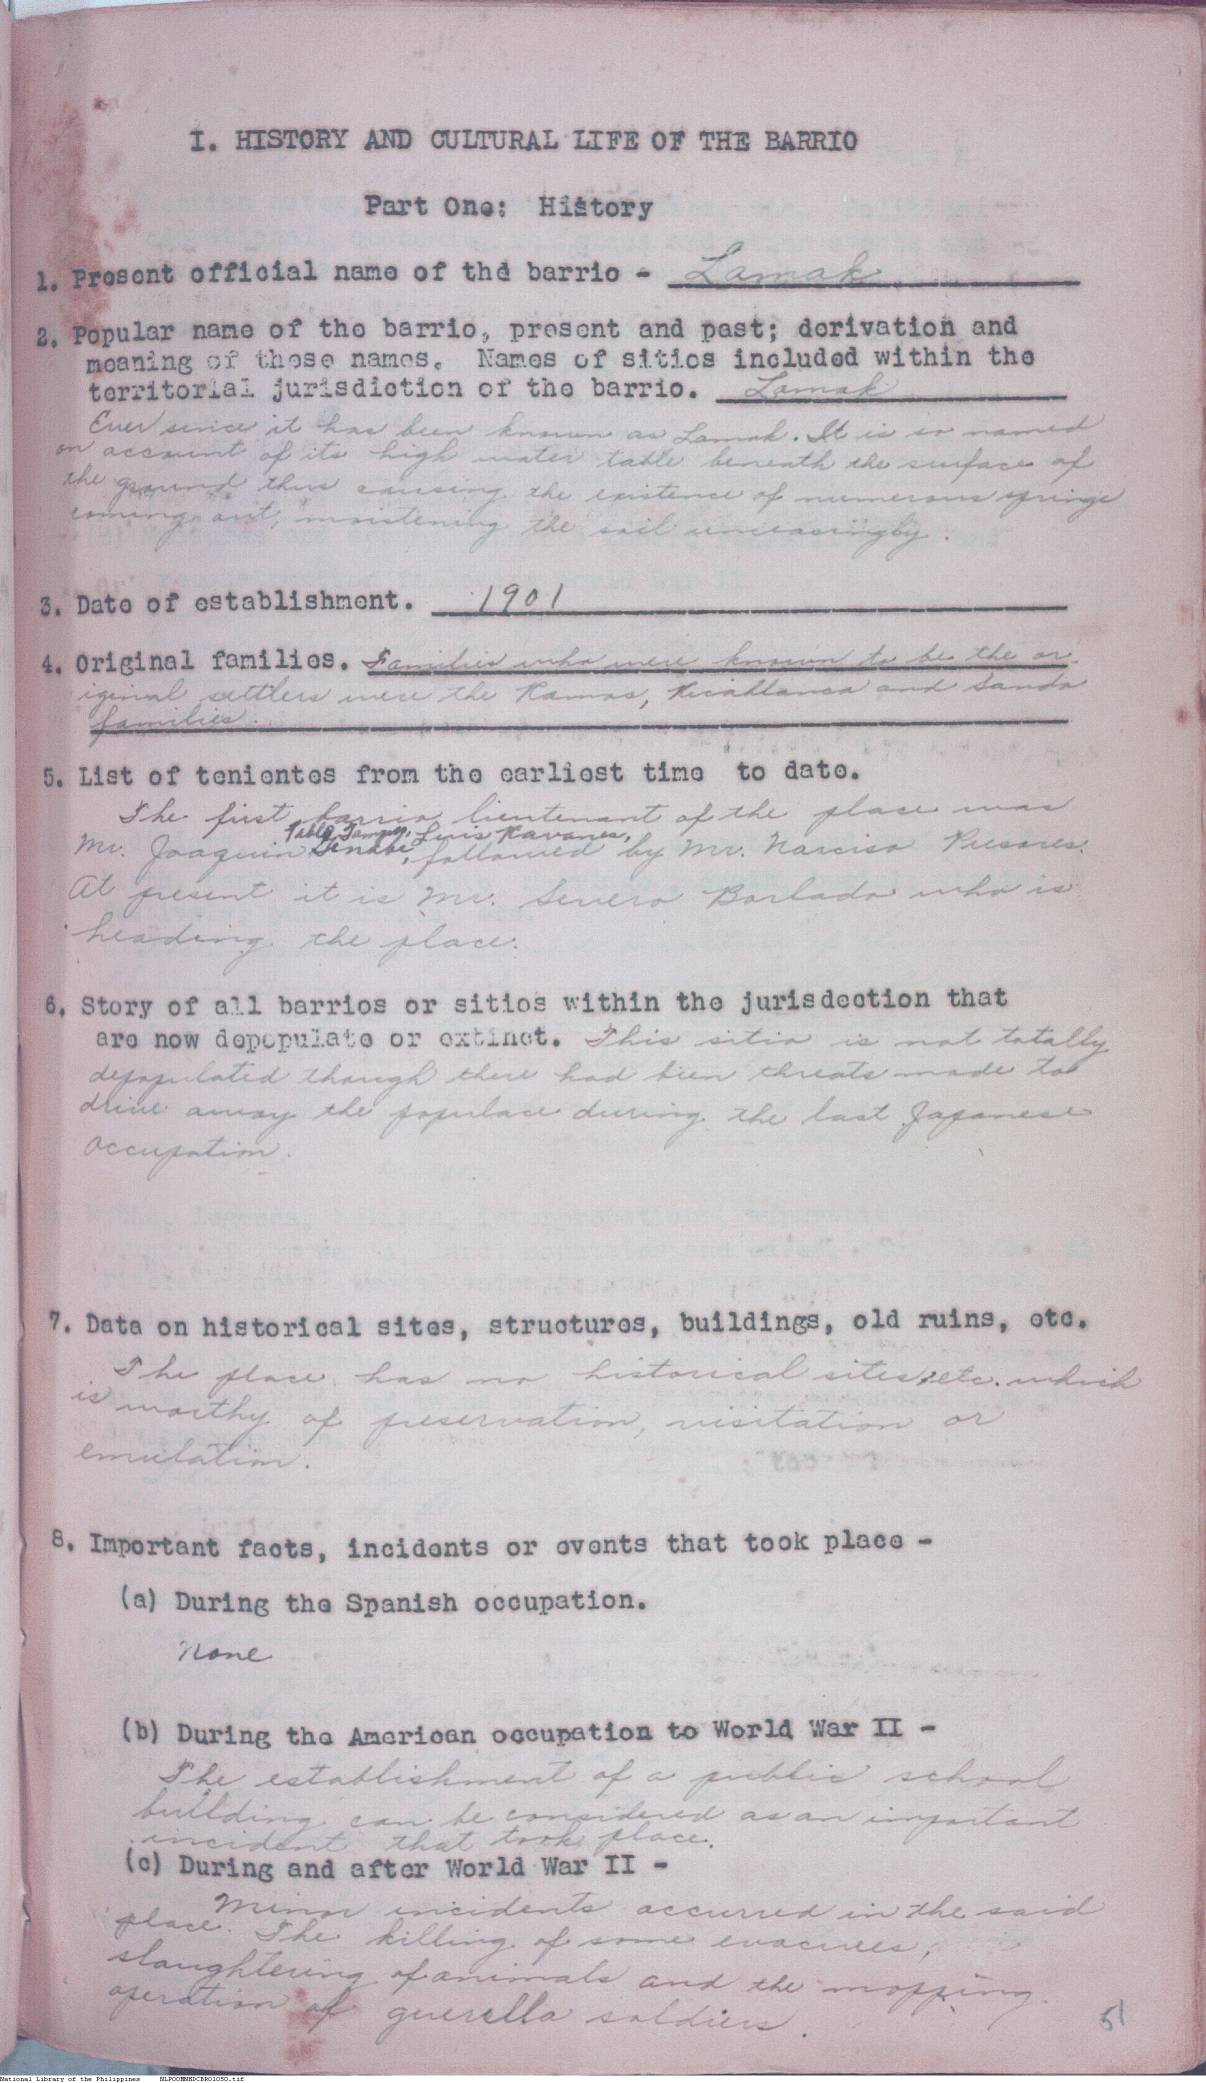 I. HISTORY AND CULTURAL LIFE OF THE BARRIO
Part One: History
1. Present official name of the barrio - Lamak
2. Popular name of the barrio, present and past; derivation and
meaning of these names. Names of sitios included within the
territorial jurisdiction of the barrio. Lamak
Ever since it has been known as Lamak. It is so named
on account of its high water table beneath the surface of
the ground thus causing the existence of numerous springs
coming out, moistening the soil unceasingly.
3. Date of establishment. 1901
4. Original families. Families who were known to be the or
iginal settlers were the Ramos, Ricablanca and Sando
families.
5. List of tenientes from the earliest time to date.
The first barrio lieutenant of the place was
Pablo Luis Ravanes,
Mr. Joaquin Genabe, followed by Mr. Narciso Presores.
At present it is Mr. Severo Borlado who is
heading the place.
6. Story of all barrios or sitios within the jurisdection that
are now depopulate or extinct. This sitio is not totally
depopulated though there had bien threats made to
drive away the populace during the last Japanese
occupation.
7. Data on historical sites, structures, buildings, old ruins, etc.
The place has no historical sites, etc. which
is worthy of preservation, visitation or
emulation.
8. Important facts, incidents or events that took place -
(a) During the Spanish occupation.
None
(b) During the American occupation to World War II -
The establishment of a public school
building can be considered as an important
incident that took place.
(c) During and after World War II -
Minor incidents occurred in the said
place. The killing of some evacuees,
slaughtering of animals and the mopping
operation of guerella soldiers.
51
National Library of the Philippines NLPOOMNHDCBRO1050.tif